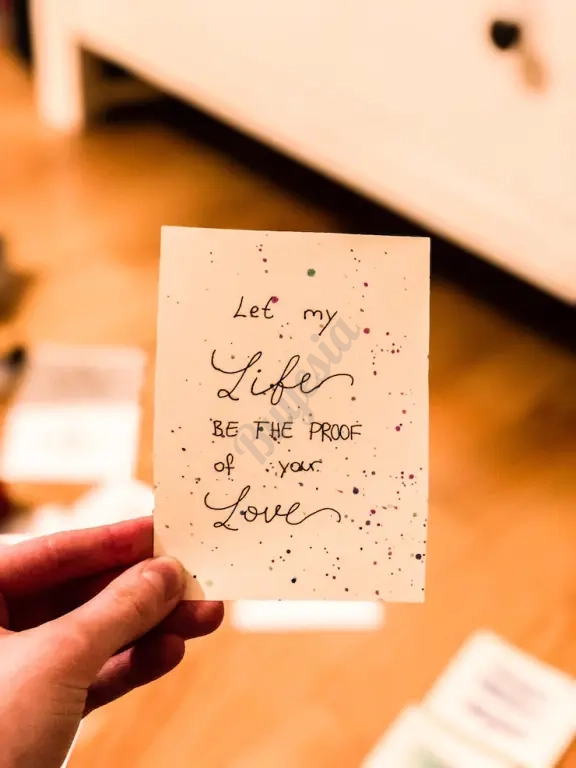 Let my
Life
BE THE PROOF
of your
Love